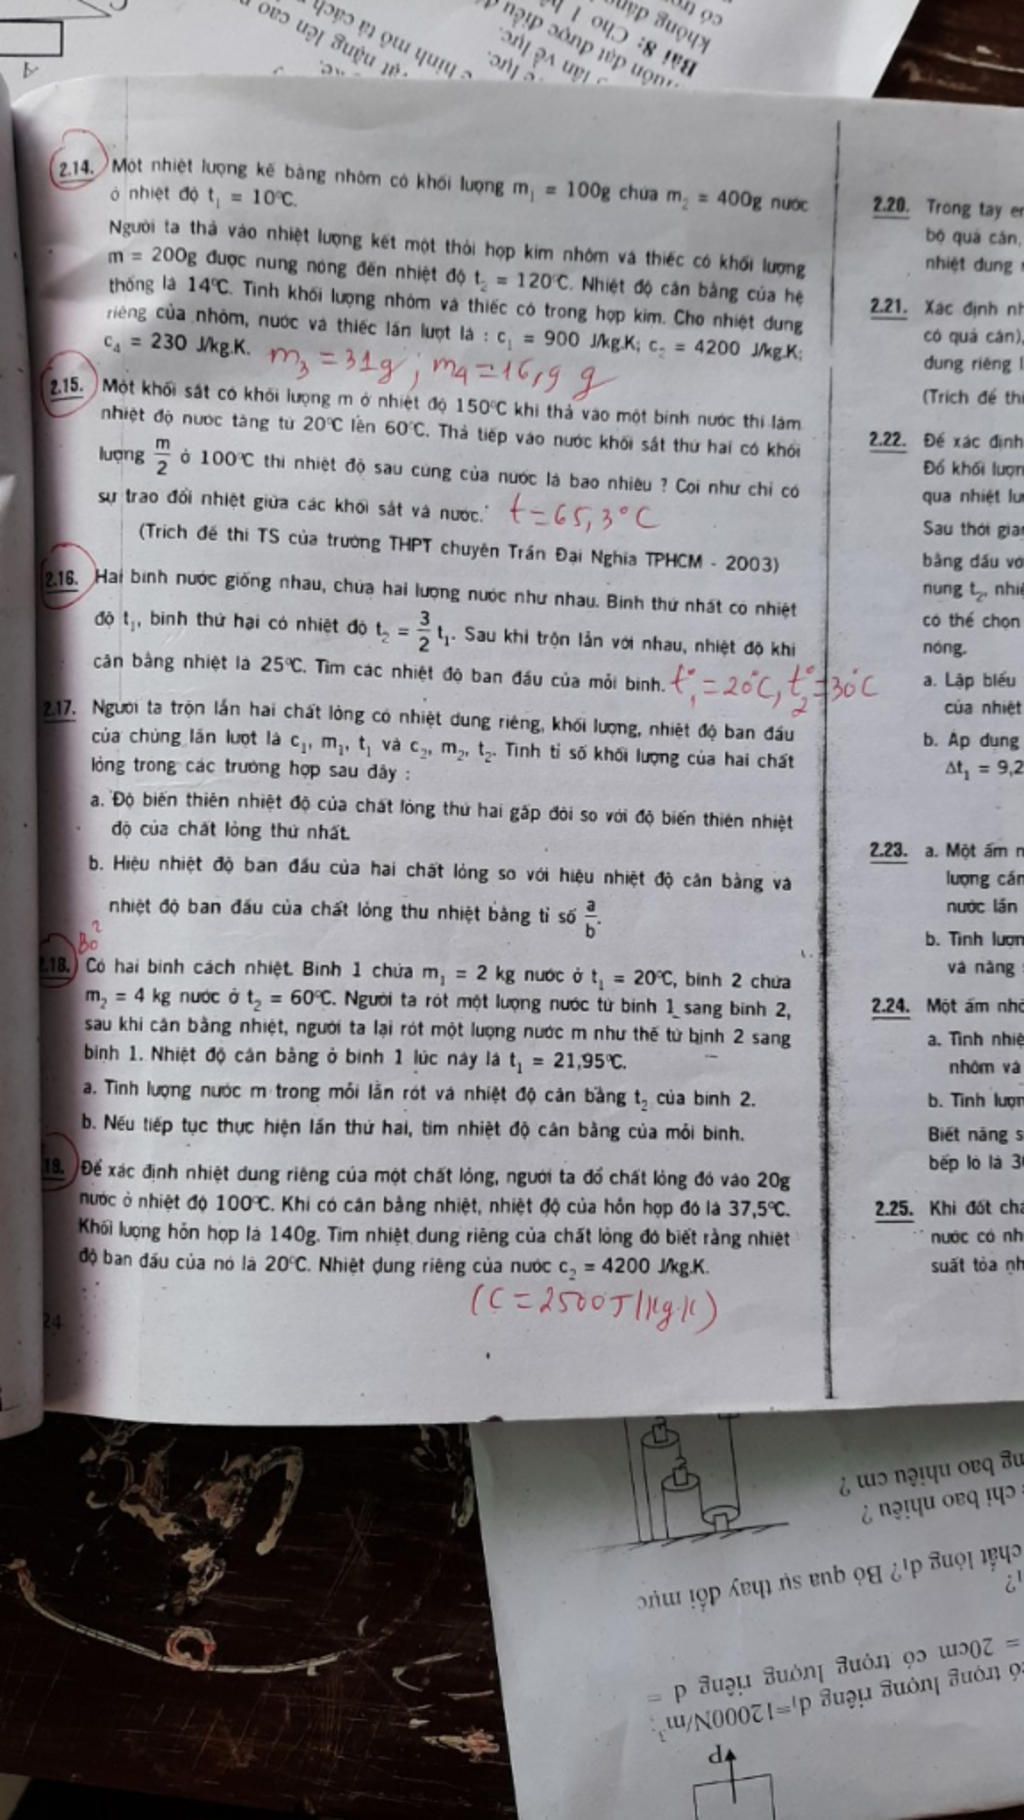 có trọ
không dáng
Bài 8: Cho 1
muôn đạt được điều
lần về lực.
ề lực.
hình mô tả cách
vật nặng lên cao
A
2.14. Một nhiệt lượng kế bằng nhôm có khối lượng m₁ = 100g chứa m₂ = 400g nước
ở nhiệt độ t₁ = 10°C.
Người ta thả vào nhiệt lượng kết một thỏi hợp kim nhôm và thiếc có khối lượng
m = 200g được nung nóng đến nhiệt độ t₂ = 120°C. Nhiệt độ cân bằng của hệ
thống là 14°C. Tính khối lượng nhôm và thiếc có trong hợp kim. Cho nhiệt dung
riêng của nhôm, nước và thiếc lần lượt là : c₁ = 900 J/kg.K; c₂ = 4200 J/kg.K;
c₄ = 230 J/kg.K. m₃ = 31g ; m₄ = 16,9 g
2.15. Một khối sắt có khối lượng m ở nhiệt độ 150°C khi thả vào một bình nước thì làm
nhiệt độ nước tăng từ 20°C lên 60°C. Thả tiếp vào nước khối sắt thứ hai có khối
lượng m/2 ở 100°C thì nhiệt độ sau cùng của nước là bao nhiêu ? Coi như chỉ có
sự trao đổi nhiệt giữa các khối sắt và nước. t = 65,3°C
(Trích đề thi TS của trường THPT chuyên Trần Đại Nghĩa TPHCM - 2003)
2.16. Hai bình nước giống nhau, chứa hai lượng nước như nhau. Bình thứ nhất có nhiệt
độ t₁, bình thứ hai có nhiệt độ t₂ = 3/2 t₁. Sau khi trộn lẫn với nhau, nhiệt độ khi
cân bằng nhiệt là 25°C. Tìm các nhiệt độ ban đầu của mỗi bình. t°₁ = 20°C, t°₂ = 30°C
2.17. Người ta trộn lẫn hai chất lỏng có nhiệt dung riêng, khối lượng, nhiệt độ ban đầu
của chúng lần lượt là c₁, m₁, t₁ và c₂, m₂, t₂. Tính tỉ số khối lượng của hai chất
lỏng trong các trường hợp sau đây :
a. Độ biến thiên nhiệt độ của chất lỏng thứ hai gấp đôi so với độ biến thiên nhiệt
độ của chất lỏng thứ nhất.
b. Hiệu nhiệt độ ban đầu của hai chất lỏng so với hiệu nhiệt độ cân bằng và
nhiệt độ ban đầu của chất lỏng thu nhiệt bằng tỉ số a/b.
Bỏ
2.18. Có hai bình cách nhiệt. Bình 1 chứa m₁ = 2 kg nước ở t₁ = 20°C, bình 2 chứa
m₂ = 4 kg nước ở t₂ = 60°C. Người ta rót một lượng nước từ bình 1 sang bình 2,
sau khi cân bằng nhiệt, người ta lại rót một lượng nước m như thế từ bình 2 sang
bình 1. Nhiệt độ cân bằng ở bình 1 lúc này là t₁ = 21,95°C.
a. Tính lượng nước m trong mỗi lần rót và nhiệt độ cân bằng t₂ của bình 2.
b. Nếu tiếp tục thực hiện lần thứ hai, tìm nhiệt độ cân bằng của mỗi bình.
19. Để xác định nhiệt dung riêng của một chất lỏng, người ta đổ chất lỏng đó vào 20g
nước ở nhiệt độ 100°C. Khi có cân bằng nhiệt, nhiệt độ của hỗn hợp đó là 37,5°C.
Khối lượng hỗn hợp là 140g. Tìm nhiệt dung riêng của chất lỏng đó biết rằng nhiệt
độ ban đầu của nó là 20°C. Nhiệt dung riêng của nước c₂ = 4200 J/kg.K.
(C = 2500 J/kg.K)
24
2.20. Trong tay em
bộ quả cân,
nhiệt dung
2.21. Xác định nh
có quả cân),
dung riêng l
(Trích đề thi
2.22. Để xác định
Đổ khối lượn
qua nhiệt lư
Sau thời gian
bằng dầu vớ
nung t₂, nhiệ
có thể chọn
nóng.
a. Lập biểu
của nhiệt
b. Áp dụng
Δt₁ = 9,2
2.23. a. Một ấm n
lượng cần
nước lần
b. Tính lượn
và năng
2.24. Một ấm nhô
a. Tính nhiệ
nhôm và
b. Tính lượn
Biết năng s
bếp lò là 3
2.25. Khi đốt chá
nước có nh
suất tỏa nh
ng bao nhiêu cm ?
chỉ bao nhiêu ?
chất lỏng d₁? Bỏ qua sự thay đổi mực
₁?
= 20cm có trọng lượng riêng d =
có trọng lượng riêng d₁=12000N/m³;
P